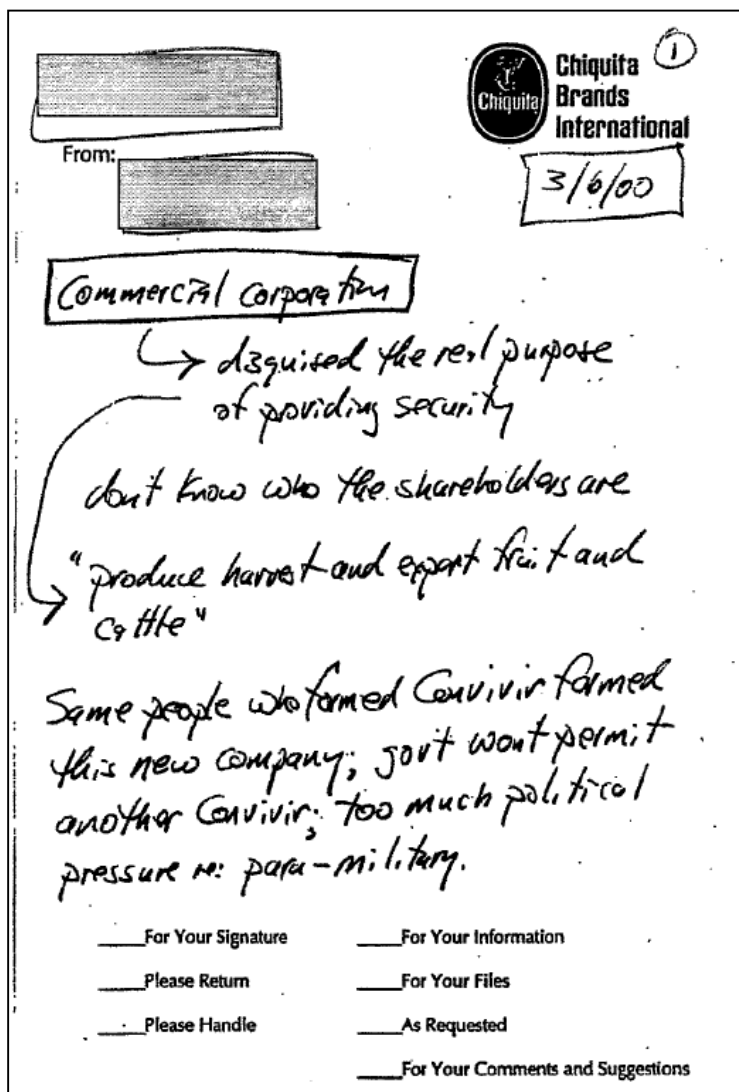 1
Chiquita
Chiquita
Brands
International
From:
3/6/00
Commercial corporation
disguised the real purpose
of providing security
don't know who the shareholders are
"produce harvest and export fruit and
cattle"
Same people who formed Convivir formed
this new company; gov't wont permit
another Convivir; too much political
pressure re: para-military.
____For Your Signature ____For Your Information
____Please Return ____For Your Files
____Please Handle ____As Requested
____For Your Comments and Suggestions